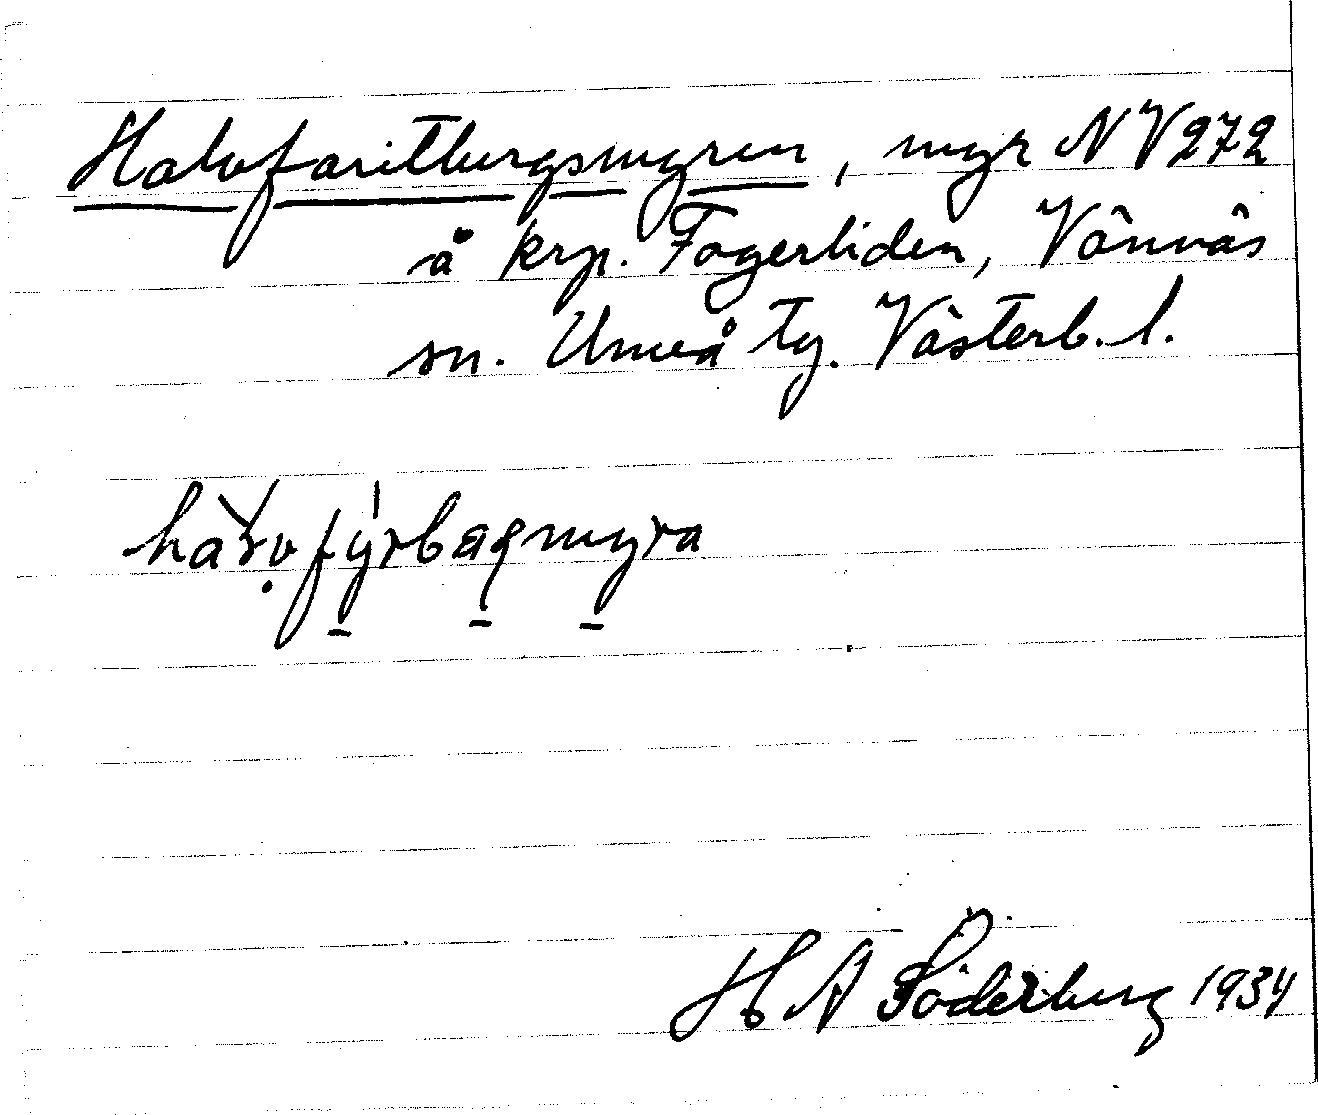 Halvfaritbergsmyren, myr NV272
å krp. Fagerliden, Vännäs
sn. Umeå tg. Västerb. l.
H A Söderberg 1934